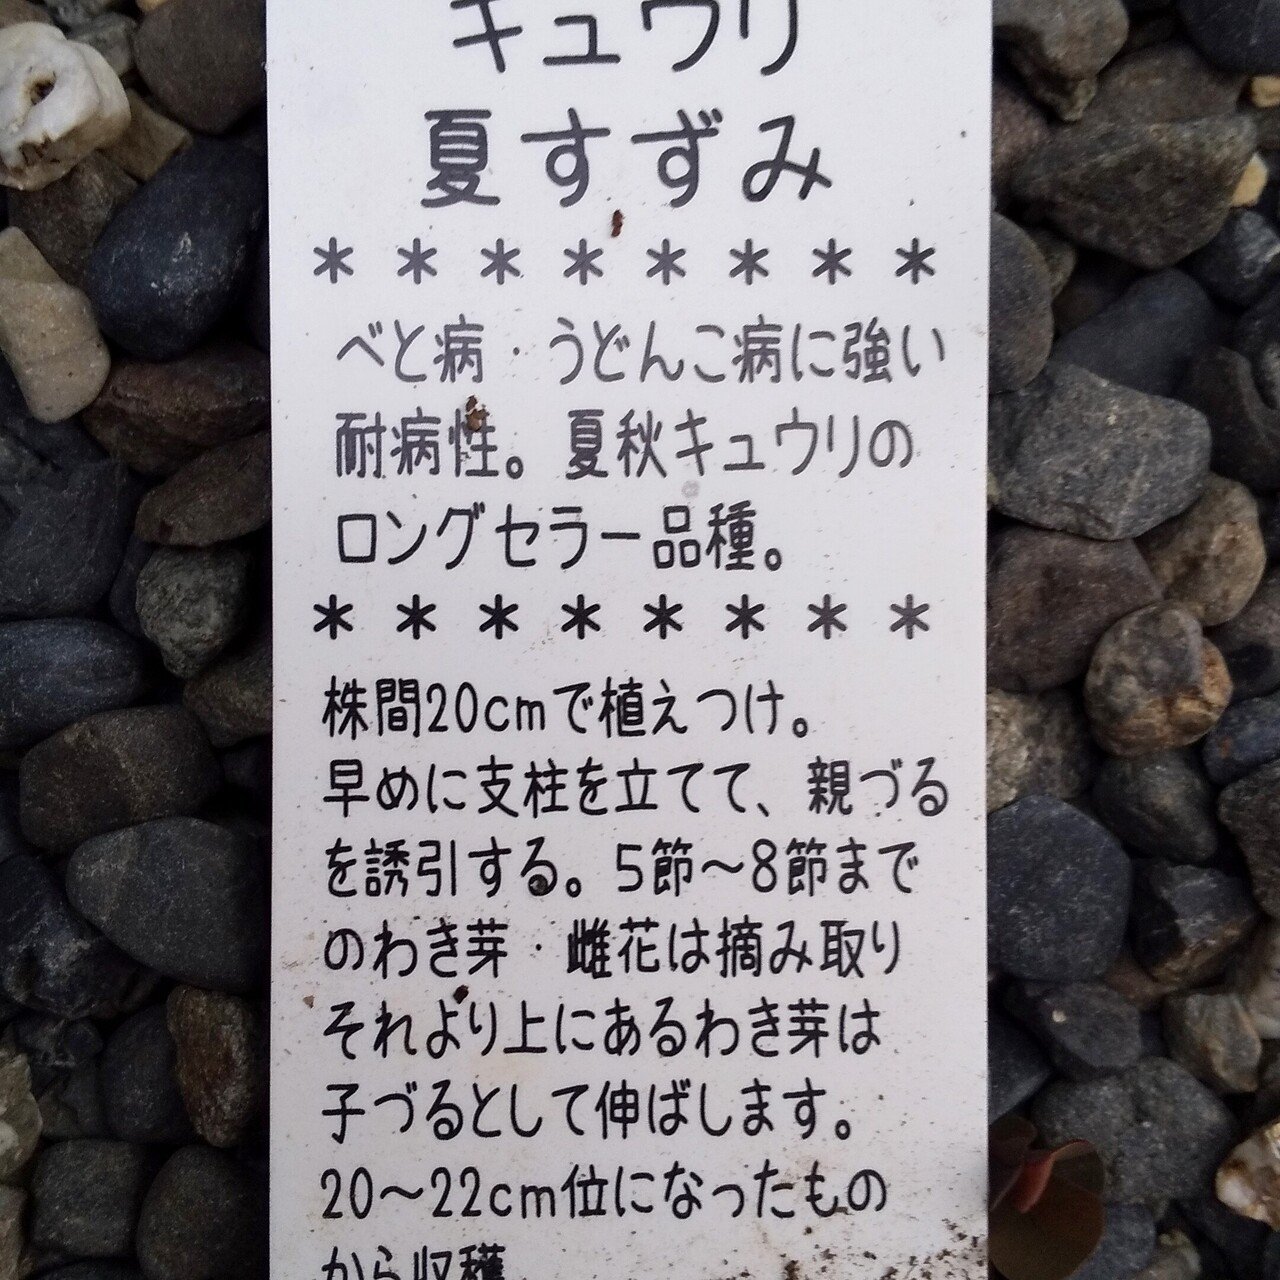 キュウリ
夏すずみ
* * * * * * * *
べと病・うどんこ病に強い
耐病性。夏秋キュウリの
ロングセラー品種。
* * * * * * * *
株間20cmで植えつけ。
早めに支柱を立てて、親づる
を誘引する。5節～8節まで
のわき芽・雌花は摘み取り
それより上にあるわき芽は
子づるとして伸ばします。
20～22cm位になったもの
から収穫